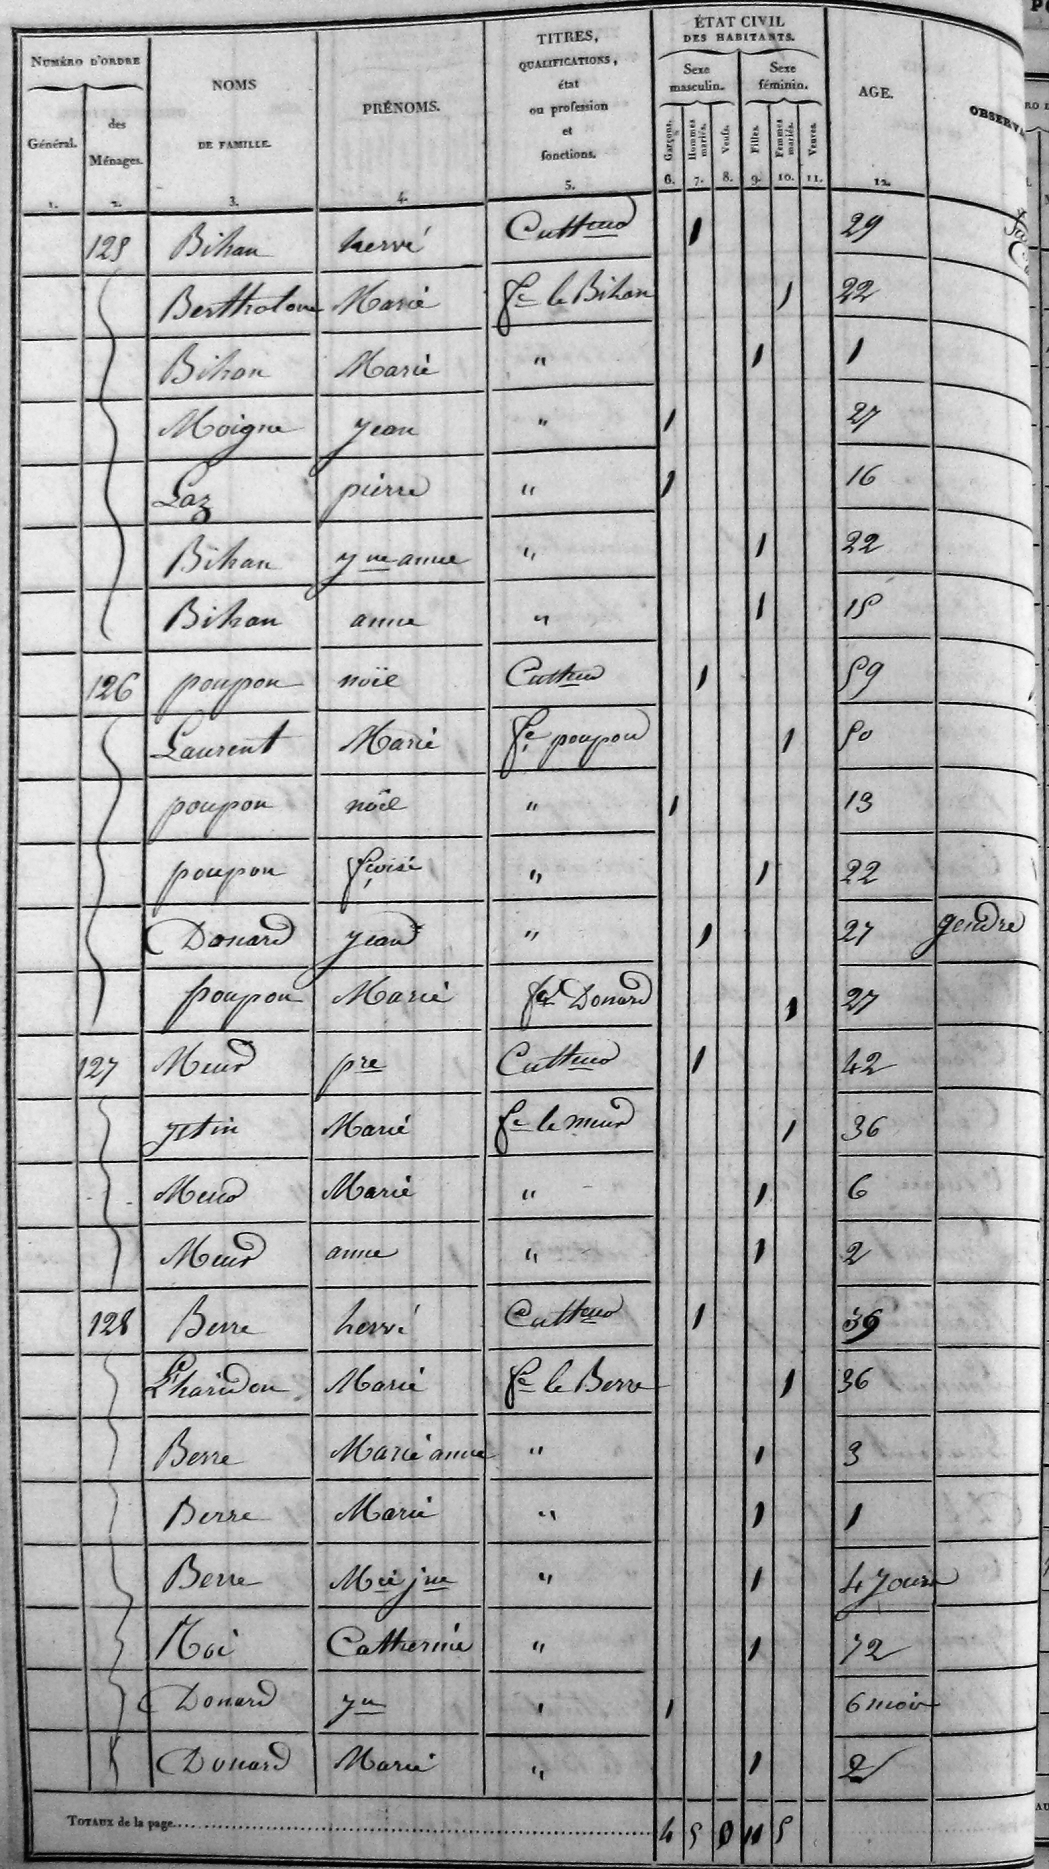 NUMÉRO D'ORDRE
Général.
des Ménages.
NOMS DE FAMILLE.
PRÉNOMS.
TITRES, QUALIFICATIONS, état ou profession et fonctions.
ÉTAT CIVIL DES HABITANTS.
Sexe masculin.
Sexe féminin.
Garçons.
Hommes mariés.
Veufs.
Filles.
Femmes mariés.
Veuves.
AGE.
OBSERVA
1. 2. 3. 4. 5. 6. 7. 8. 9. 10. 11. 12.
125 Bihan hervé Cultteur 1 29
Bertholome Marie fe le Bihan 1 22
Bihan Marie " 1 1
Moigne jean " 1 27
Laz pierre " 1 16
Bihan jne anne " 1 22
Bihan anne " 1 15
126 poupon noël Cultteur 1 59
Laurent Marie fe poupon 1 50
poupon noël " 1 13
poupon fçoise " 1 22
Donard jean " 1 27 gendre
poupon Marie fe Donard 1 27
127 Meur pre Cultteur 1 42
jstin Marie fe le meur 1 36
Meur Marie " 1 6
Meur anne " 1 2
128 Berre hervé Cultteur 1 39
L'haridon Marie fe le Berre 1 36
Berre Marie anne " 1 3
Berre Marie " 1 1
Berre Mie jne " 1 4 jours
Catherine " 1 72
Donard yn " 1 6 mois
Donard Marie " 1 2
TOTAUX de la page 4 5 0 11 5